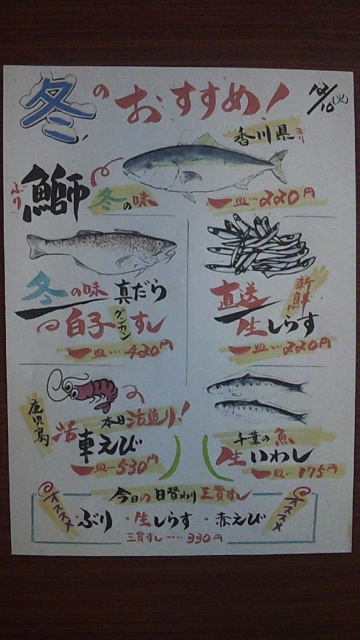 冬のおすすめ!
12/10(火)
香川県より
ぶり
鰤
冬の味
一皿…220円
冬の味 真だら
白子グンカンすし
一皿…420円
直送 新鮮
生しらす
一皿…220円
本日活造り!
鹿児島
活車えび
一皿…530円
千葉の魚
生いわし
一皿…175円
今日の日替わり三貫すし
ぶり・生しらす・赤えび
三貫すし…330円